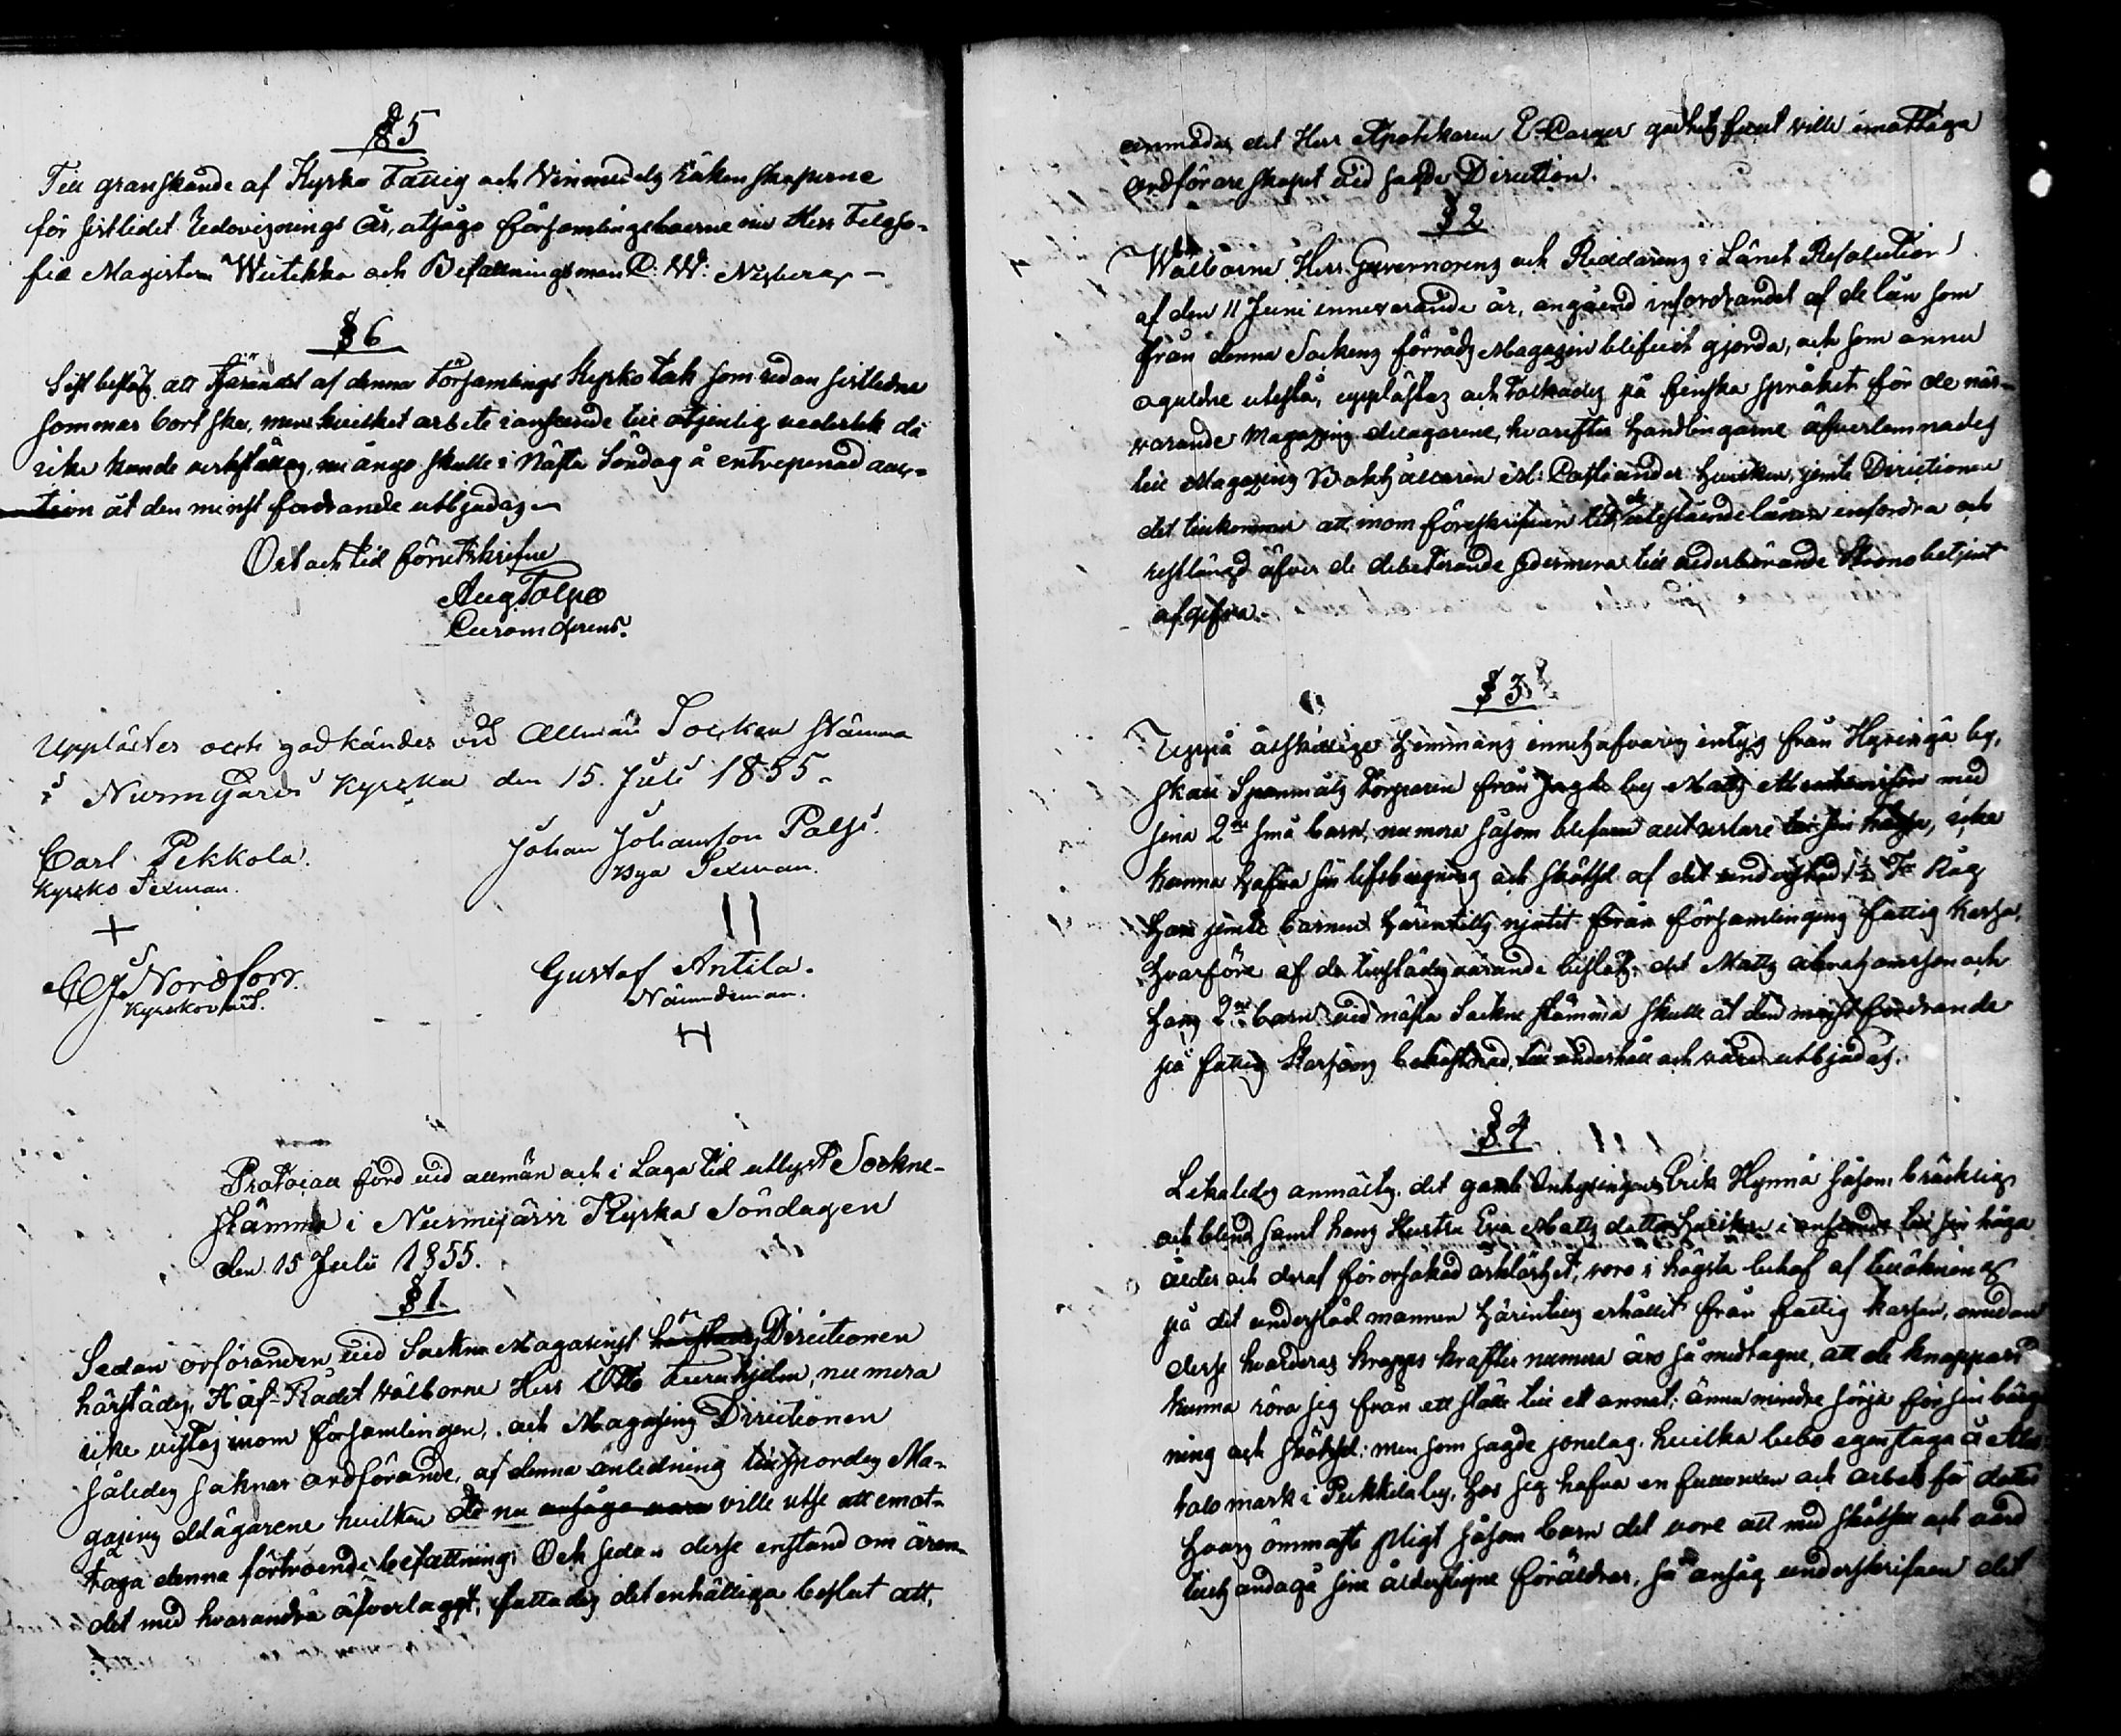 §5
Till granskande af Kyrko Fattig och Vinmedels Räkenskaperne
för sistledet Redovisnings År, utsågo församlingsboerne nu Herr Filoso-
fie Magistern Wiitikka och Befallningsman C: W: Nyberg –
§6
Sist beslöts att tjärandet af denna Församlings Kyrko tak som redan sistledne
sommar bort ske, men hvilket arbete i anseende till otjenlig väderlek då
icke kunde verkställas, nu ånyo skulle i Nästa Söndag å entreprenad auc-
tion åt den minst fordrande utbjudas –
Ort och tid föreskrifne
Aug Tolpo
Curam Gerens.
Upplästes och godkändes vid Allmän Socken Stämma
i Nurmijärvi Kyrka den 15. Juli 1855.
Carl Pekkola.
Kyrko Sexman.
Johan Johansson Palsi.
Bya Sexman.
CG Nordfors.
Kyrkovärd.
Gustaf Antila.
Nämndeman.
Protocoll förd vid allmän och i Laga tid utlyst Sockne-
stämma i Nurmijärvi Kyrka Söndagen
den 15 Julii 1855.
§1.
Sedan orföranden vid Sockne Magasinst Directionen
härstädes, Håf-Rådet välborne Herr Otto Furuhjelm, numera
icke vistas inom församlingen, och Magasins Directionen
således saknar ordförande, af denna anledning tillspordes Ma-
gasins delägarene hvilken de nu ville utse att emot-
taga denna förtroende befattning; Och sedan desse enstand om ären-
det med hvarandra öfverlaggt, fattades det enhälliga beslut att,
anmodas det Herr Apothekaren E godhetsfullt ville emottaga
ordföreskapet vid sagde Direction.
§2
Wälborne Herr Guvernorens och Riddarens i Länet Resolution
af den 11 Juni innevarande år, angående infordrandet af de lån som
från denna Sockens förråds Magazin blifvit gjorda, och som ännu
oguldne utestå, upplästes och tolkades på finska språket för de när-
varande Magazins delägarene, hvarefter handlingarne öfverlemnades
till Magazins Bokhållaren M: Castrander hvilken, jemte Directionen
det tillkommer att inom föreskrifven tid, de utestående lånen infordra och
restlängd öfver de debeterande sedermera till vederbörande Kronobetjent
afgifva.
§3
Uppå åtskillige hemmans innehafvares intyg från Hyvinge by,
skall Spanmåls torparen från sagde by Matts Abrahamsson med
sina 2ne små barn, numera såsom blefven allt, icke
kunna hafva sin lifsbergning och skötsel af det understöd 1½ Tr Råg
han jemte barnen härintills njutit från församlingens fattig kassa,
hvarföre af de tillstädesvarande beslöts det Matts Abrahamsson och
hans 2ne barn vid nästa Sockne stämma skulle åt den minst fordrande
på fattig Kassans bekostnad, till underhåll och vård utbjudas.
§4
Likaledes anmältes det gamle Inhysingen Erik Hynnä såsom bräcklig
och blind samt hans Hustru Eva Matts dotter hvilken i anseende till sin höga
ålder och deraf förorsakad orklöshet, vore i högsta behof af tillökning
på det understöd mannen härintills erhållit från fattig kassan, emedan
desse hvarderas kropps krafter numera äro så medtagne, att de knappast
kunna röra sig från ett ställe till ett annat; ännu mindre sörja för sin berg
ning och skötsel; men som sagde jonelag. hvilka bebo egen stuga å Ale
talo mark i Pekkila by, hos sig hafva en fullvuxen och arbets för dotter
hvars ömmaste pligt såsom barn det vore att med skötsel och vård
tillhandagå sine ålderstigne föräldrar, så ansåg underskrifven det